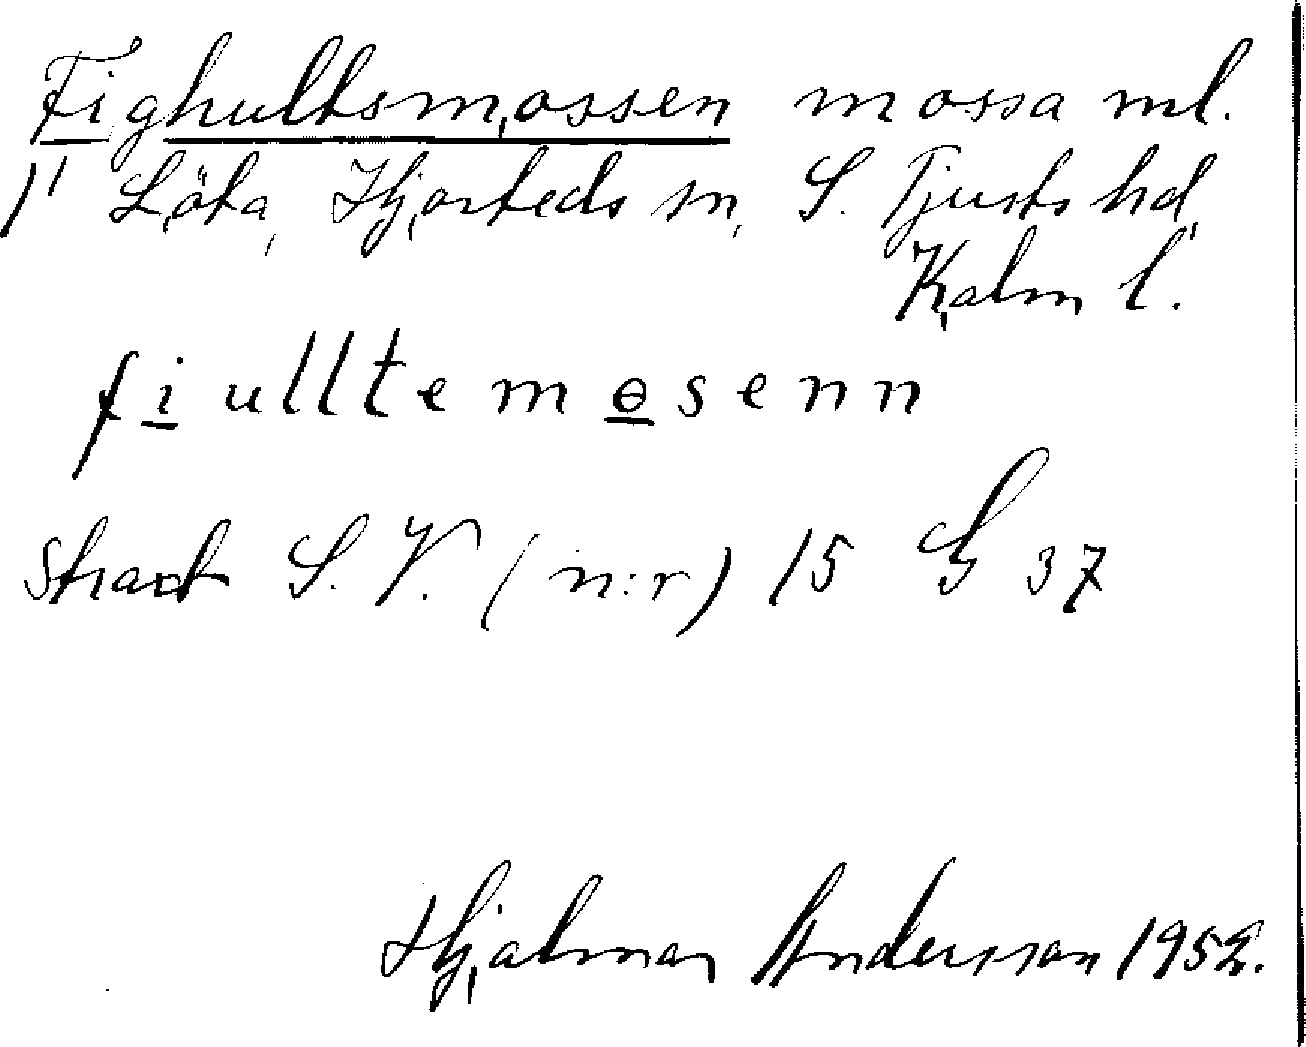 Fighultsmossen mossa ml.
1' Löta, Hjorteds sn, S. Tjusts hd,
Kalm l.
fiulltemosenn
Strax S. V. (n:r) 15 G 37
Hjalmar Andersson 1952.